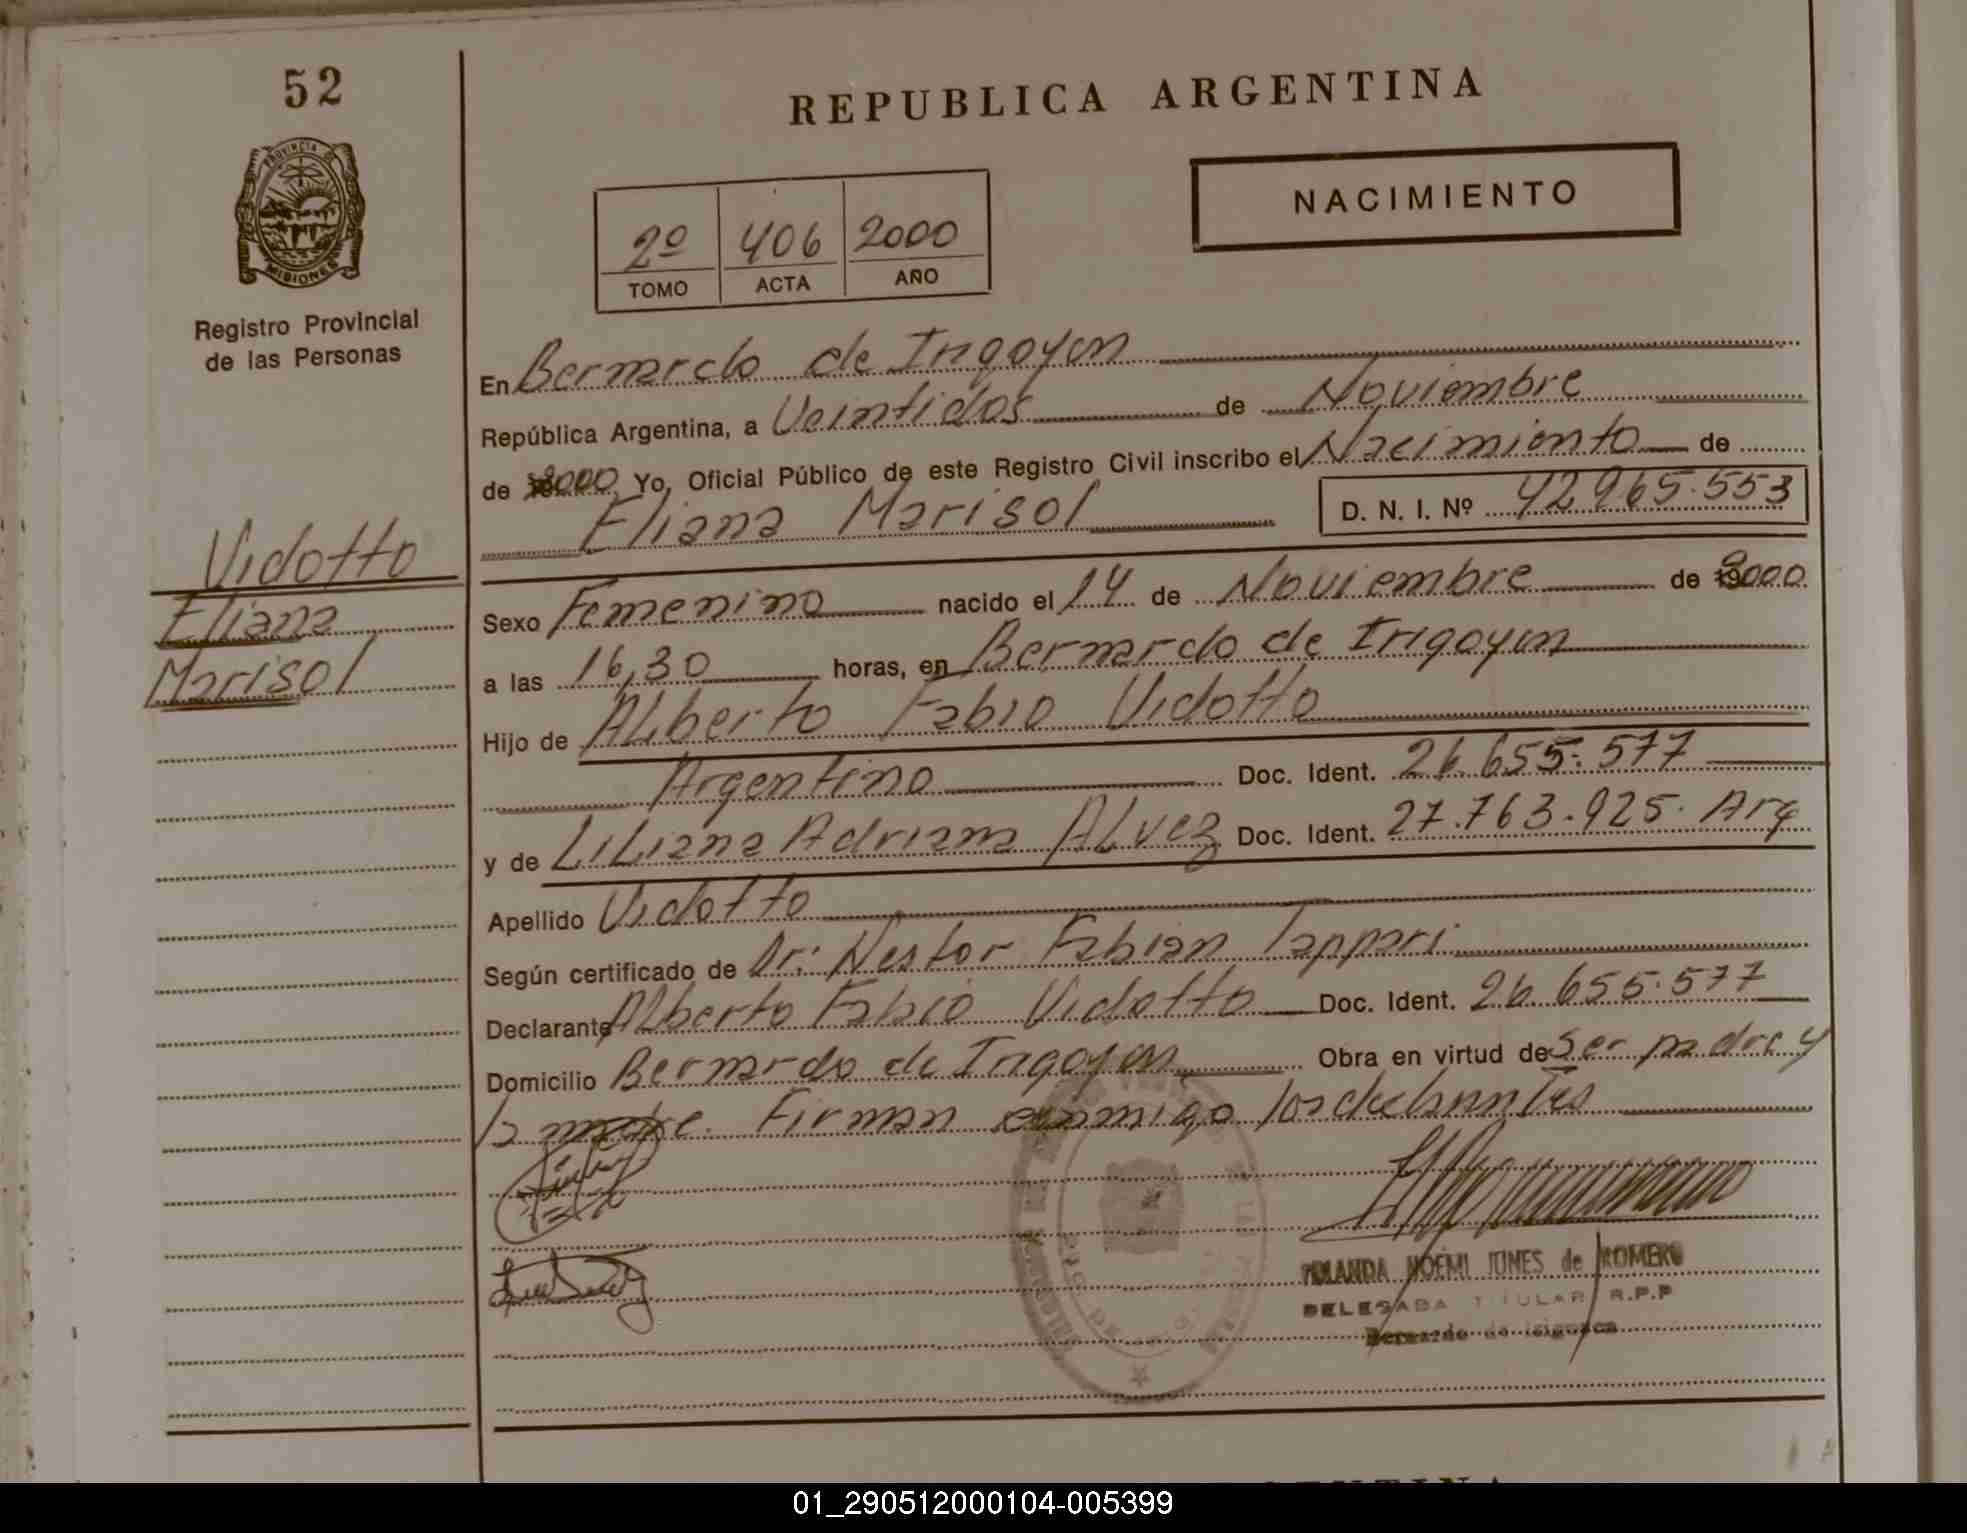 52
REPUBLICA ARGENTINA
NACIMIENTO
2º 406 2000
TOMO ACTA AÑO
PROVINCIA DE
MISIONES
Registro Provincial
de las Personas
Vidotto
Eliana
Marisol
En Bernardo de Irigoyen
República Argentina, a Veintidos de Noviembre
de 2000 Yo, Oficial Público de este Registro Civil inscribo el Nacimiento de
Eliana Marisol D. N. I. Nº 42965.553
Sexo Femenino nacido el 14 de Noviembre de 2000
a las 16,30 horas, en Bernardo de Irigoyen
Hijo de Alberto Fabio Vidotto
Argentino Doc. Ident. 26.655.577
y de Liliana Adriana Alvez Doc. Ident. 27.763.925. Arg
Apellido Vidotto
Según certificado de Dr: Nestor Fabian Tappari
Declarante Alberto Fabio Vidotto Doc. Ident. 26.655.577
Domicilio Bernardo de Irigoyen Obra en virtud de Ser padre y
la madre. Firman conmigo los declarantes
YOLANDA NOEMI JUNES de ROMERO
DELEGADA TITULAR R.P.P
Bernardo de Irigoyen
01_290512000104-005399